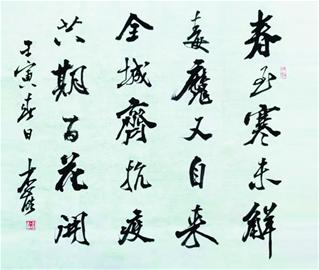 春至寒未解
毒魔又自来
全城齊抗疫
共期百花開
壬寅春日